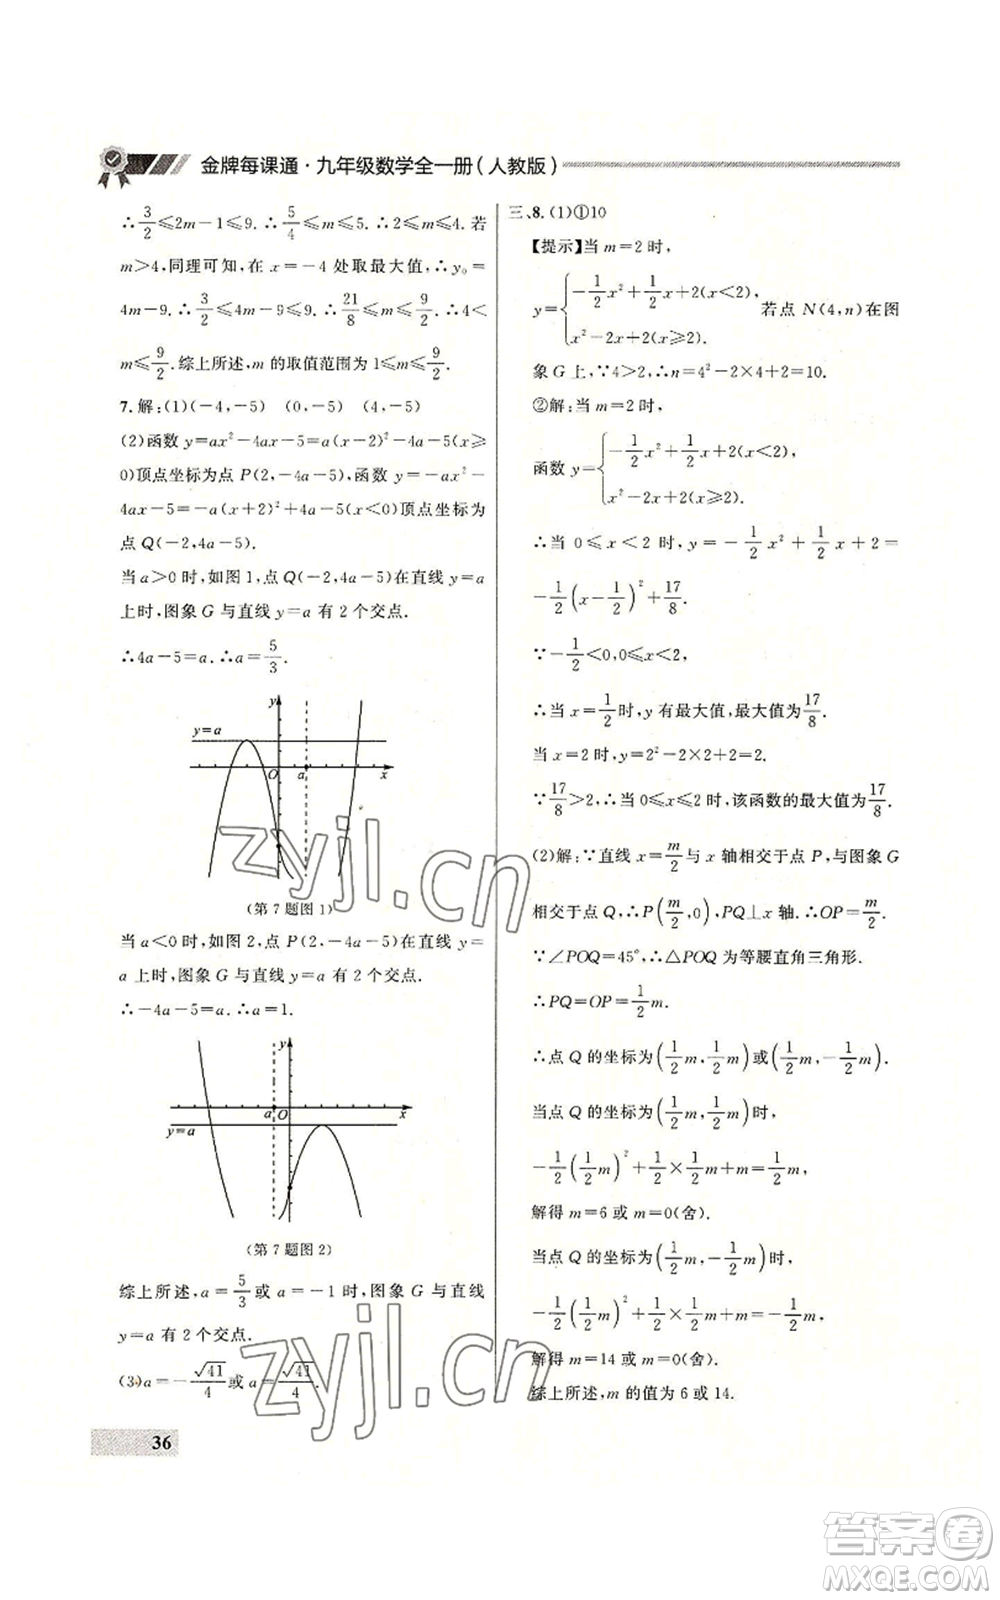 金牌每课通·九年级数学全一册(人教版)
∴3/2≤2m-1≤9. ∴5/4≤m≤5. ∴2≤m≤4. 若
m>4,同理可知,在 x=-4 处取最大值,∴y₀=
4m-9. ∴3/2≤4m-9≤9. ∴21/8≤m≤9/2. ∴4<
m≤9/2. 综上所述,m 的取值范围为 1≤m≤9/2.
7. 解:(1)(-4,-5) (0,-5) (4,-5)
(2)函数 y=ax²-4ax-5=a(x-2)²-4a-5(x≥
0)顶点坐标为点 P(2,-4a-5),函数 y=-ax²-
4ax-5=-a(x+2)²+4a-5(x<0)顶点坐标为
点 Q(-2,4a-5).
当 a>0 时,如图 1,点 Q(-2,4a-5)在直线 y=a
上时,图象 G 与直线 y=a 有 2 个交点.
∴4a-5=a. ∴a=5/3.
y
y=a
O a x
(第 7 题图 1)
当 a<0 时,如图 2,点 P(2,-4a-5)在直线 y=
a 上时,图象 G 与直线 y=a 有 2 个交点.
∴-4a-5=a. ∴a=1.
y
a O x
y=a
(第 7 题图 2)
综上所述,a=5/3或 a=-1 时,图象 G 与直线
y=a 有 2 个交点.
(3)a=-√41/4或 a=√41/4.
36
三、8. (1)①10
【提示】当 m=2 时,
y={-1/2x²+1/2x+2(x<2),
x²-2x+2(x≥2).
若点 N(4,n)在图
象 G 上,∵4>2,∴n=4²-2×4+2=10.
②解:当 m=2 时,
函数 y={-1/2x²+1/2x+2(x<2),
x²-2x+2(x≥2).
∴当 0≤x<2 时,y=-1/2x²+1/2x+2=
-1/2(x-1/2)²+17/8.
∵-1/2<0,0≤x<2,
∴当 x=1/2时,y 有最大值,最大值为17/8.
当 x=2 时,y=2²-2×2+2=2.
∵17/8>2,∴当 0≤x≤2 时,该函数的最大值为17/8.
(2)解:∵直线 x=m/2与 x 轴相交于点 P,与图象 G
相交于点 Q,∴P(m/2,0),PQ⊥x 轴. ∴OP=m/2.
∵∠POQ=45°,∴△POQ 为等腰直角三角形.
∴PQ=OP=1/2m.
∴点 Q 的坐标为(1/2m,1/2m)或(1/2m,-1/2m).
当点 Q 的坐标为(1/2m,1/2m)时,
-1/2(1/2m)²+1/2×1/2m+m=1/2m,
解得 m=6 或 m=0(舍).
当点 Q 的坐标为(1/2m,-1/2m)时,
-1/2(1/2m)²+1/2×1/2m+m=-1/2m,
解得 m=14 或 m=0(舍).
综上所述,m 的值为 6 或 14.
zyjl.cn
zyjl.cn
答案卷
MXQE.COM